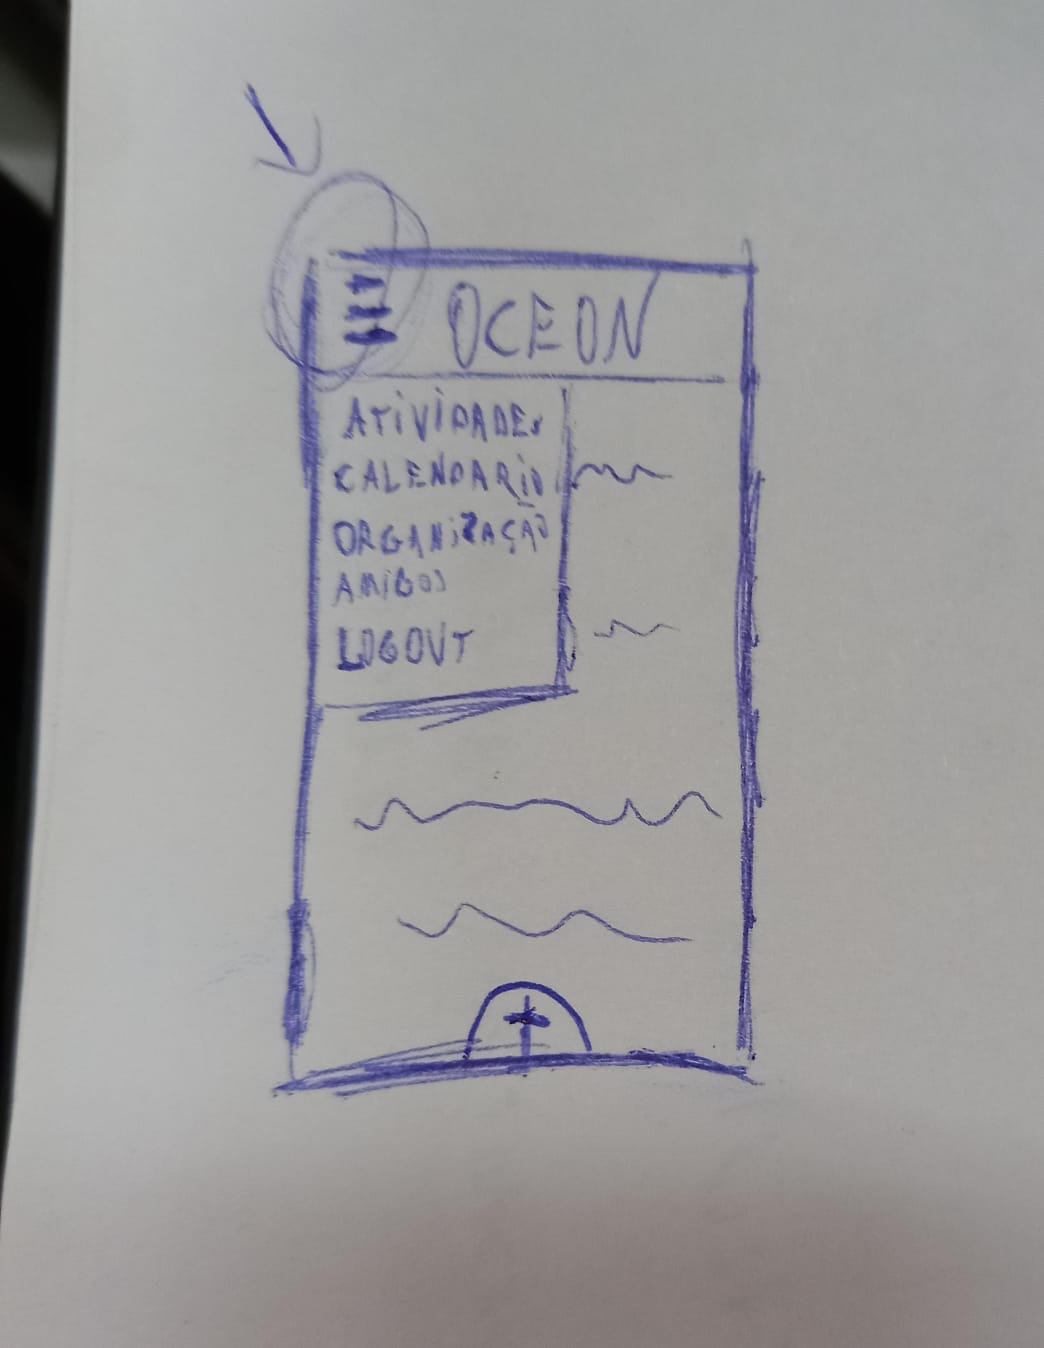 OCEON
ATIVIDADES
CALENDARIO
ORGANIZAÇÃO
AMIGOS
LOGOUT